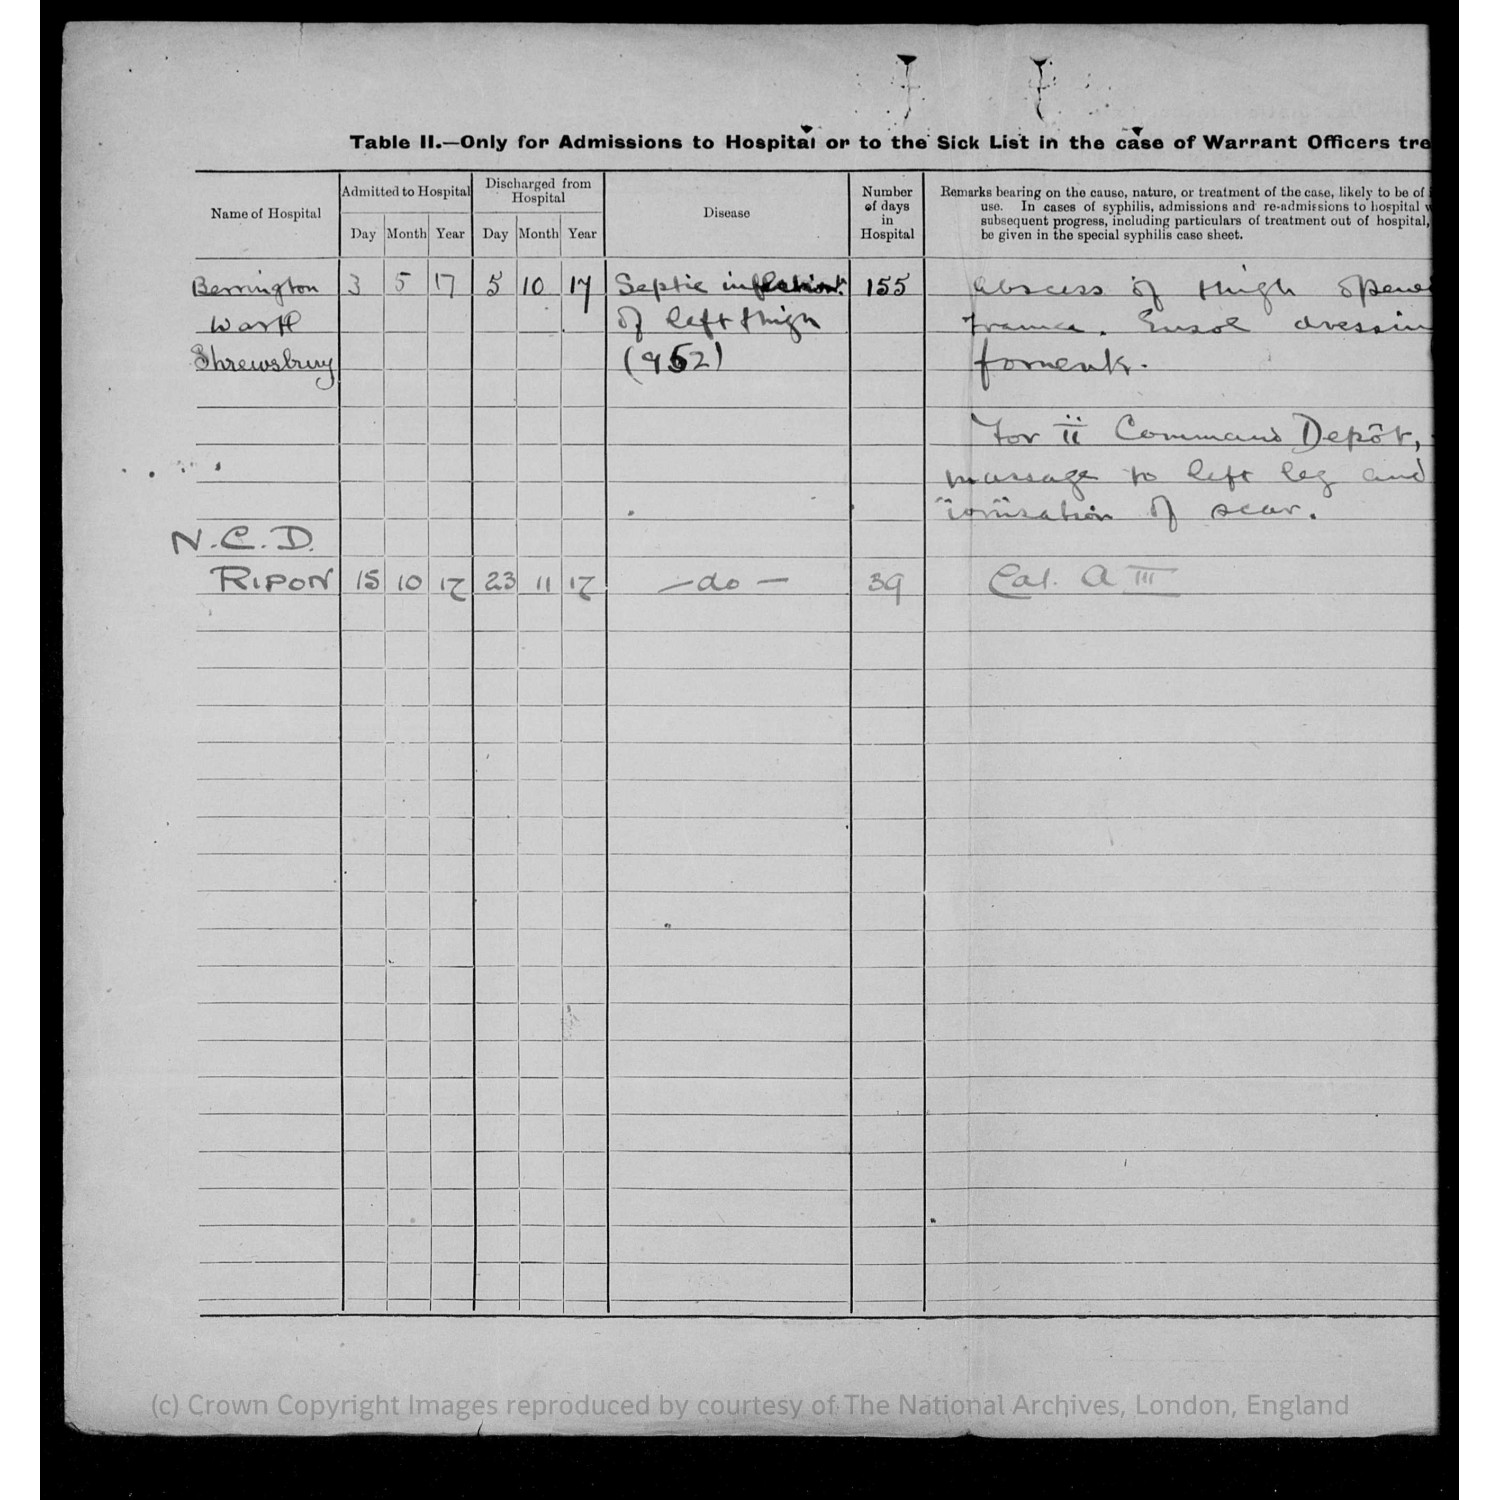 Table II.—Only for Admissions to Hospital or to the Sick List in the case of Warrant Officers tre
Name of Hospital
Admitted to Hospital
Discharged from
Hospital
Disease
Number
of days
in
Hospital
Remarks bearing on the cause, nature, or treatment of the case, likely to be of
use. In cases of syphilis, admissions and re-admissions to hospital w
subsequent progress, including particulars of treatment out of hospital,
be given in the special syphilis case sheet.
Day Month Year Day Month Year
Berrington 3 5 17 5 10 17 Septic infection 155 Abscess of thigh opene
War H of left thigh France. Eusol dressin
Shrewsbury (952) foments.
For ii Command Depôt,
massage to left leg and
ionisation of scar.
N.C.D.
RIPON 15 10 17 23 11 17 —do— 39 Cat. A III
(c) Crown Copyright Images reproduced by courtesy of The National Archives, London, England